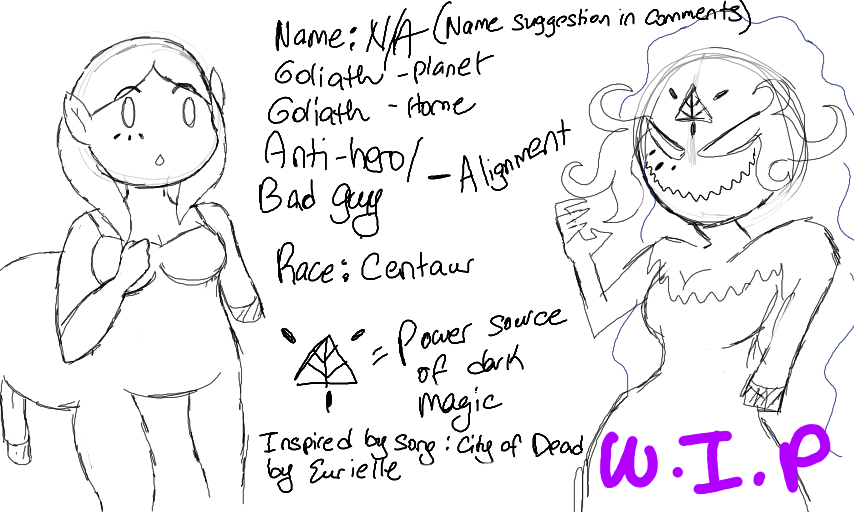 Name: N/A (Name suggestion in comments)
Goliath - Planet
Goliath - Home
Anti-hero/
Bad guy - Alignment
Race: Centaur
= Power source
of dark
magic
Inspired by song: City of Dead
by Eurielle
W.I.P